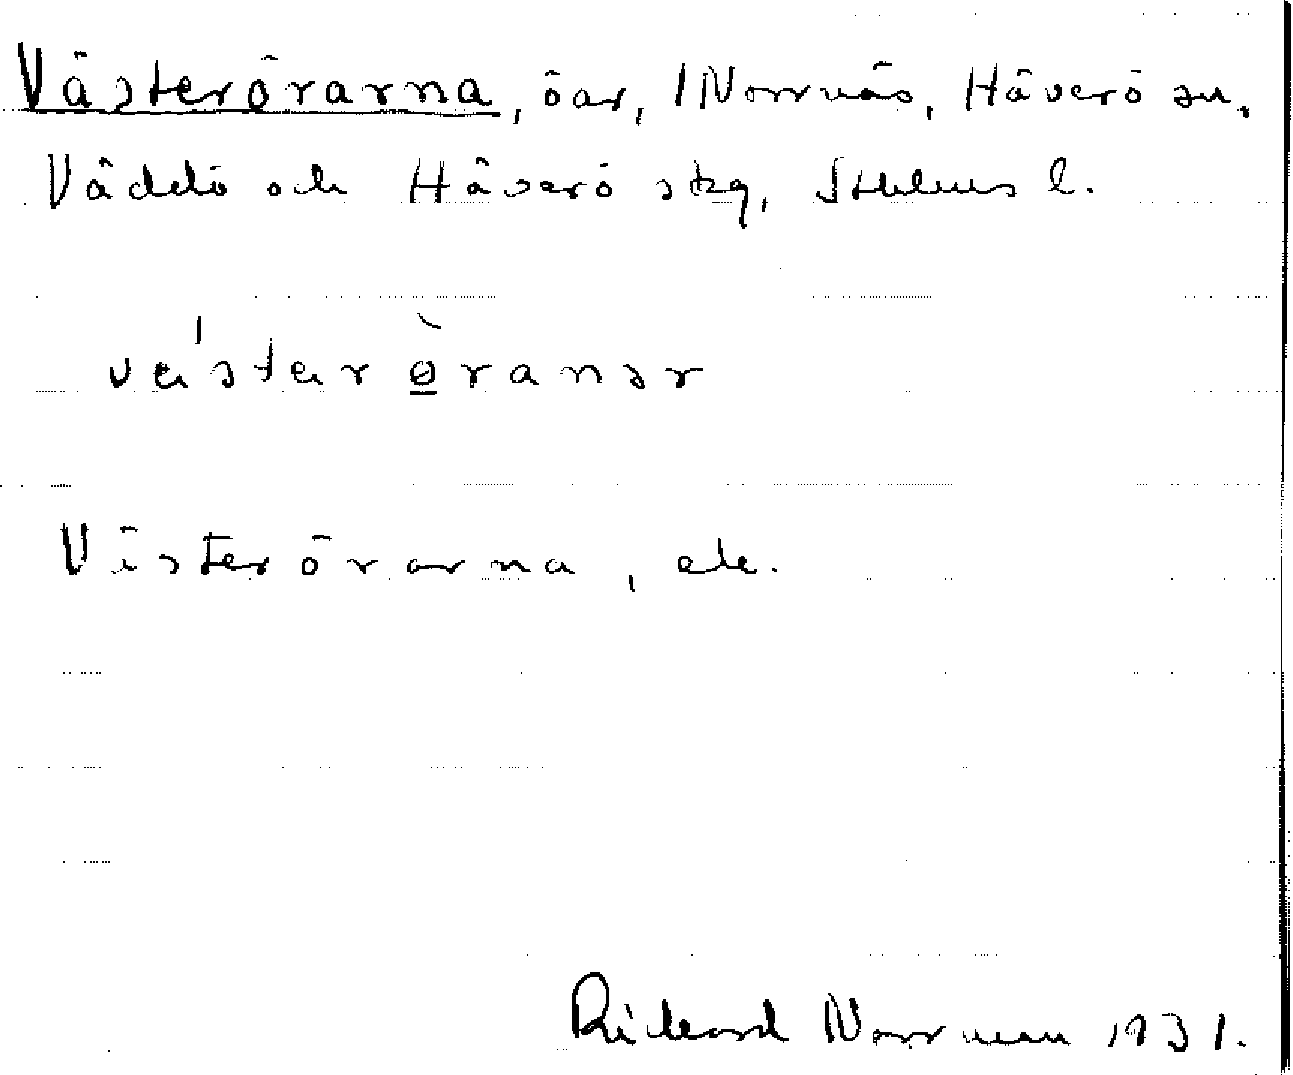 Västerörarna, öar, 1 Norrnäs, Häverö sn.
Väddö och Häverö skg, Sthlms l.
vä́sterø̱̀ranər
Västerörarna, ek.
Rickard Norrman 1931.